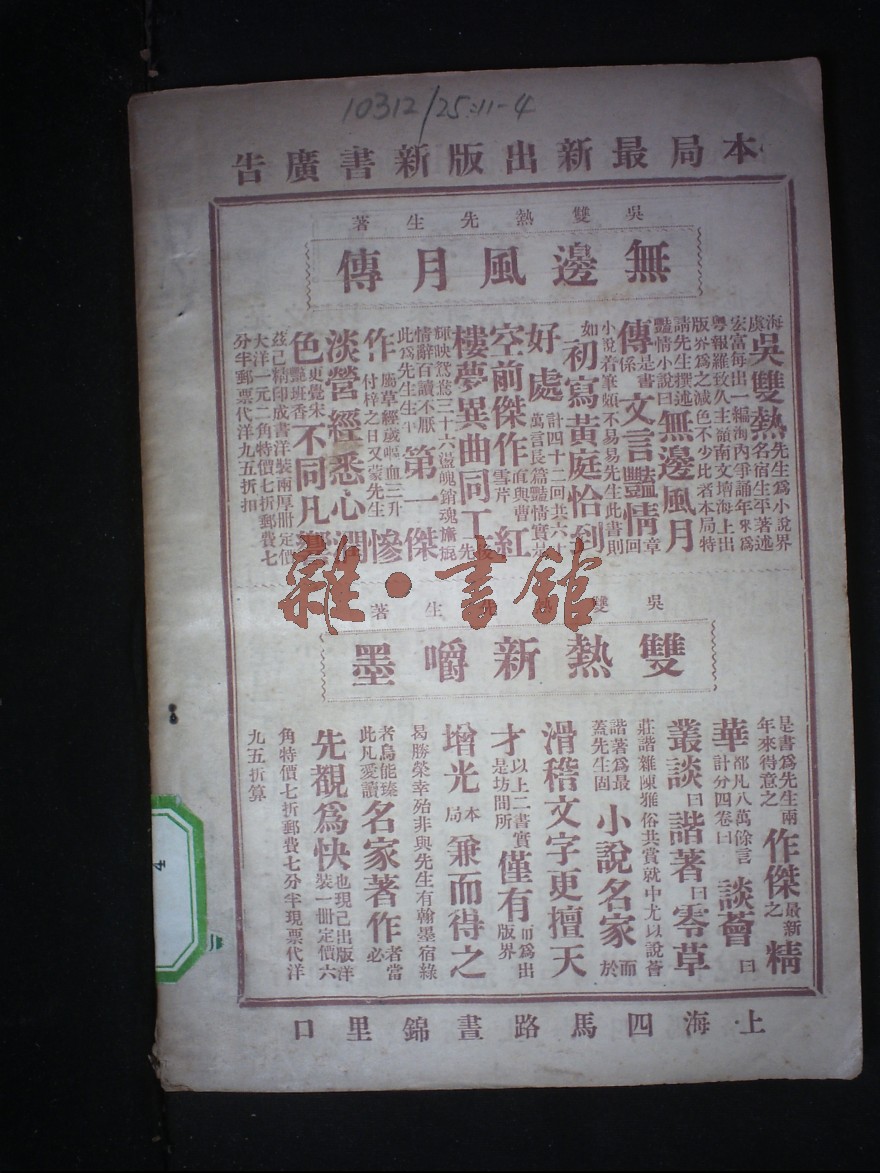 10312/25:11-4
本局最新出版新書廣告
吳雙熱先生著
無邊風月傳
海虞吳雙熱先生爲小說界名宿生平著述
宏富每出一編海內爭誦年來爲
粵報羅致久主嶺南文壇海上出
版界爲之減色不少比者本局特
請先生撰述
豔情小說曰無邊風月
傳是書係文言豔情章回
小說若著筆頗不易易先生此書則
如初寫黃庭恰到
好處計四十二回共六十萬言長篇豔情實
空前傑作直與曹雪芹紅
樓夢異曲同工
輝映鴛鴦三十六盪魄銷魂旖旎
情辭百讀不厭
此爲先生生平第一傑
作屬草經歲嘔血三升付梓之日又蒙先生慘
淡營經悉心潤
色更覺宋豔班香不同凡
茲已精印成書洋裝兩厚冊定價
大洋一元二角特價七折郵費七
分半郵票代洋九五折扣
雜·書館
吳雙生著
雙熱新嚼墨
是書爲先生兩年來得意之作傑最新之精
華都凡八萬餘言計分四卷曰談薈曰
叢談曰諧著曰零草
莊諧雜陳雅俗共賞就中尤以說薈
諧著爲最蓋先生固小說名家而於
滑稽文字更擅天
才以上二書實是坊間所僅有而爲出版界
增光本局兼而得之
曷勝榮幸殆非與先生有翰墨宿緣
者烏能臻此凡愛讀名家著作者當必
先覩爲快也現已出版洋裝一冊定價六
角特價七折郵費七分半現票代洋
九五折算
上海四馬路晝錦里口
4